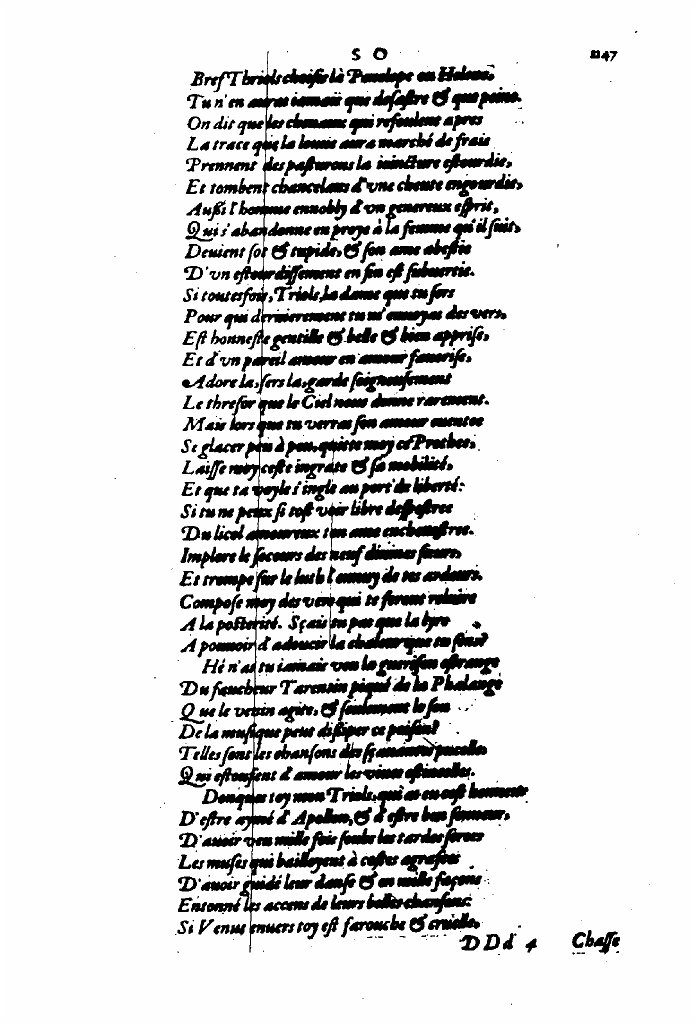 S O
1147
Bref Triols choisis là Penelope ou Helene,
Tu n'en auras iamais que desastre & que peine.
On dit que les cheuaux qui refoulent apres
La trace que la louue aura marché de frais
Prennent des pasturons la iuincture estourdie,
Et tombent chancelans d'vne cheute engourdie,
Außi l'homme ennobly d'vn genereux esprit,
Qui s'abandonne en proye à la femme qu'il suit,
Deuient sot & stupide, & son ame abestie
D'vn estourdissement en fin est subuertie.
Si toutesfois, Triols, la dame que tu sers
Pour qui dernierement tu m'enuoyas des vers,
Est honneste gentille & belle & bien apprise,
Et d'vn pareil amour en amour fauorise,
Adore la, sers la, garde soigneusement
Le thresor que le Ciel nous donne rarement.
Mais lors que tu verras son amour
Se glacer peu à peu, quitte moy ce Prothee,
Laisse moy ceste ingrate & sa mobilité,
Et que ta voyle single au port de liberté:
Si tu ne peux si tost voir libre despestree
Du licol amoureux ton ame encheuestree.
Implore le secours des neuf diuines sœurs,
Et trompe sur le luth l'ennuy de tes ardeurs.
Compose moy des vers qui te feront reluire
A la posterité. Sçais tu pas que la lyre
A pouuoir d'adoucir la chaleur que tu sens?
Hé n'as tu iamais veu la guerison estrange
Du faucheur Tarentin piqué de la Phalange
Que le venin agite, & seulement le son
De la musique peut dißiper ce poison?
Telles sont les chansons des sçauantes pucelles
Qui estoufent d'amour les viues estincelles.
Donques toy mon Triols, qui as en cest honneur
D'estre aymé d'Apollon, & d'estre bon sonneur,
D'auoir veu mille fois soubs les tardes serees
Les muses qui balloyent à cottes agrafees
D'auoir guidé leur danse & en mille façons
Entonné les accens de leurs belles chansons:
Si Venus enuers toy est farouche & cruelle,
D D d 4
Chasse